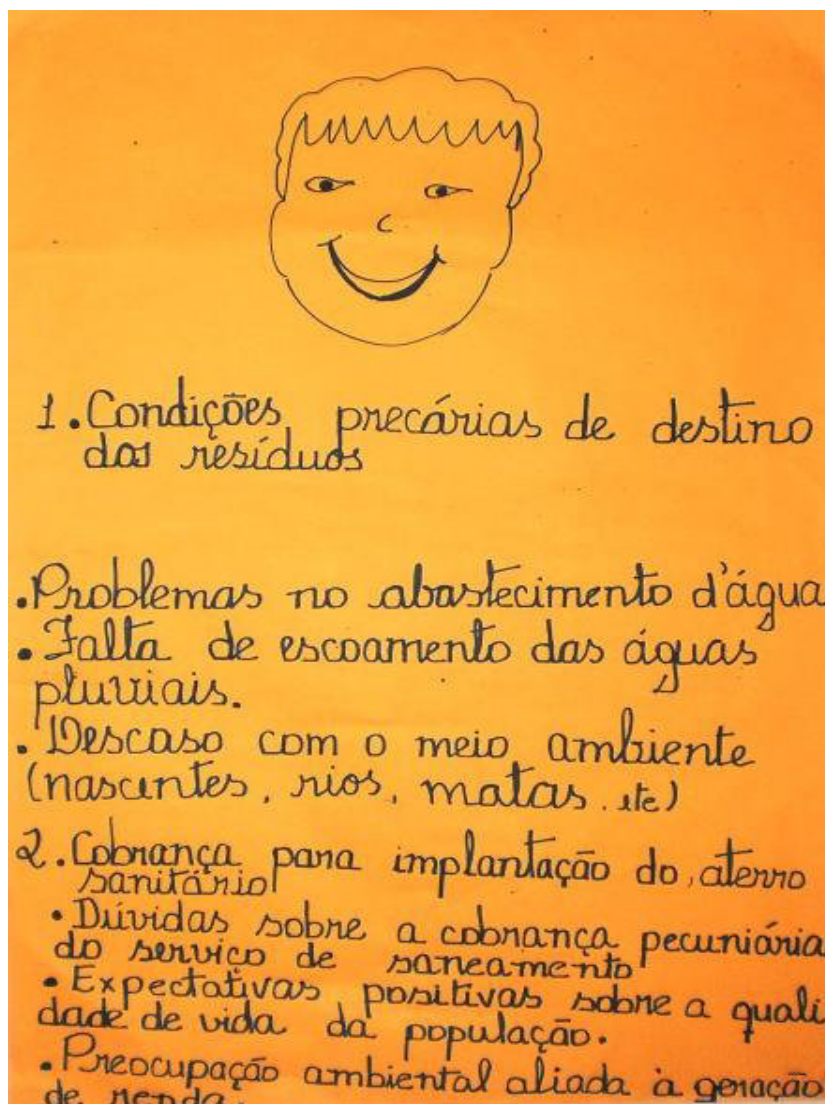 1. Condições precárias de destino
dos resíduos
• Problemas no abastecimento d'água
• Falta de escoamento das águas
pluviais.
• Descaso com o meio ambiente
(nascentes, rios, matas. etc)
2. Cobrança para implantação do aterro
sanitário
• Dúvidas sobre a cobrança pecuniária
do serviço de saneamento
• Expectativas positivas sobre a quali
dade de vida da população.
• Preocupação ambiental aliada à geração
de renda.